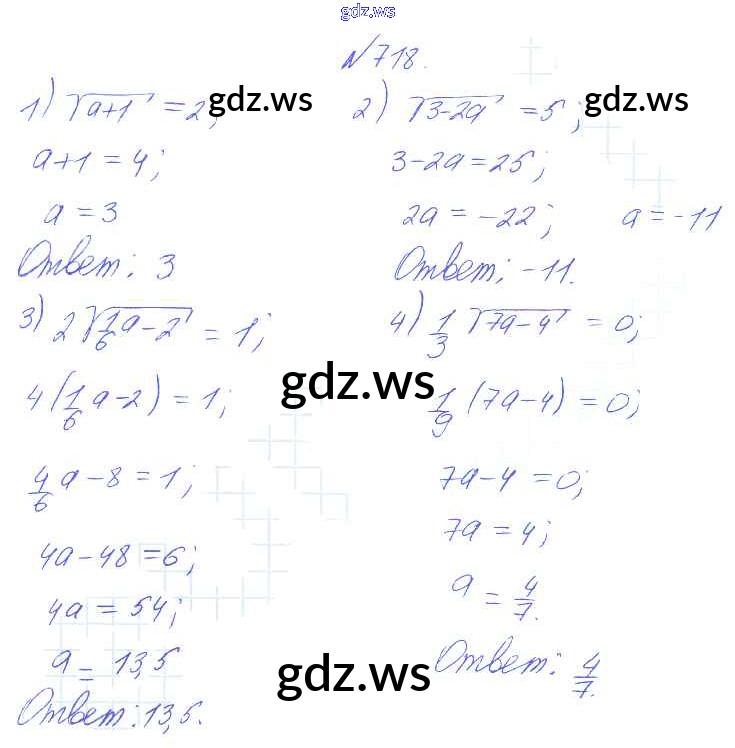 gdz.ws
№718.
1) √(a+1) = 2; gdz.ws
a+1 = 4;
a = 3
Ответ: 3
2) √(3-2a) = 5; gdz.ws
3-2a = 25;
2a = -22; a = -11
Ответ: -11.
3) 2√(1/6 a - 2) = 1;
4(1/6 a - 2) = 1;
4/6 a - 8 = 1;
4a - 48 = 6;
4a = 54;
a = 13,5
Ответ: 13,5.
4) 1/3 √(7a-4) = 0;
gdz.ws
1/9 (7a-4) = 0;
7a-4 = 0;
7a = 4;
a = 4/7.
Ответ: 4/7.
gdz.ws